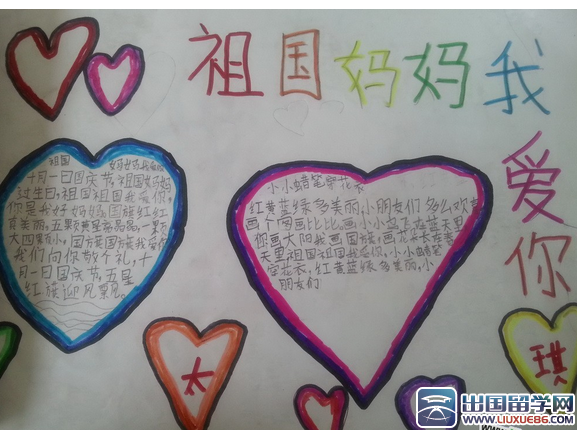 祖国妈妈我
爱
你
祖国 妈妈我爱你
十月一日国庆节,祖国妈妈
过生日,祖国祖国我爱你,
你是我好妈妈,国旗红红
真美丽,五颗黄星亮晶晶,一颗
大四颗小,国旗国旗我爱你
我们向你敬个礼,十
月一日国庆节,五星
红旗迎风飘。
小小蜡笔穿花衣
红黄蓝绿多美丽,小朋友们多么欢喜
画个图画比比,画小小鸟飞在蓝天里
你画太阳我画国旗,画花
天里祖国祖国我爱你,小小蜡笔
穿花衣,红黄蓝绿多美丽,小
朋友们
大
琪
出国留学网
WWW.LIUXUE86.COM